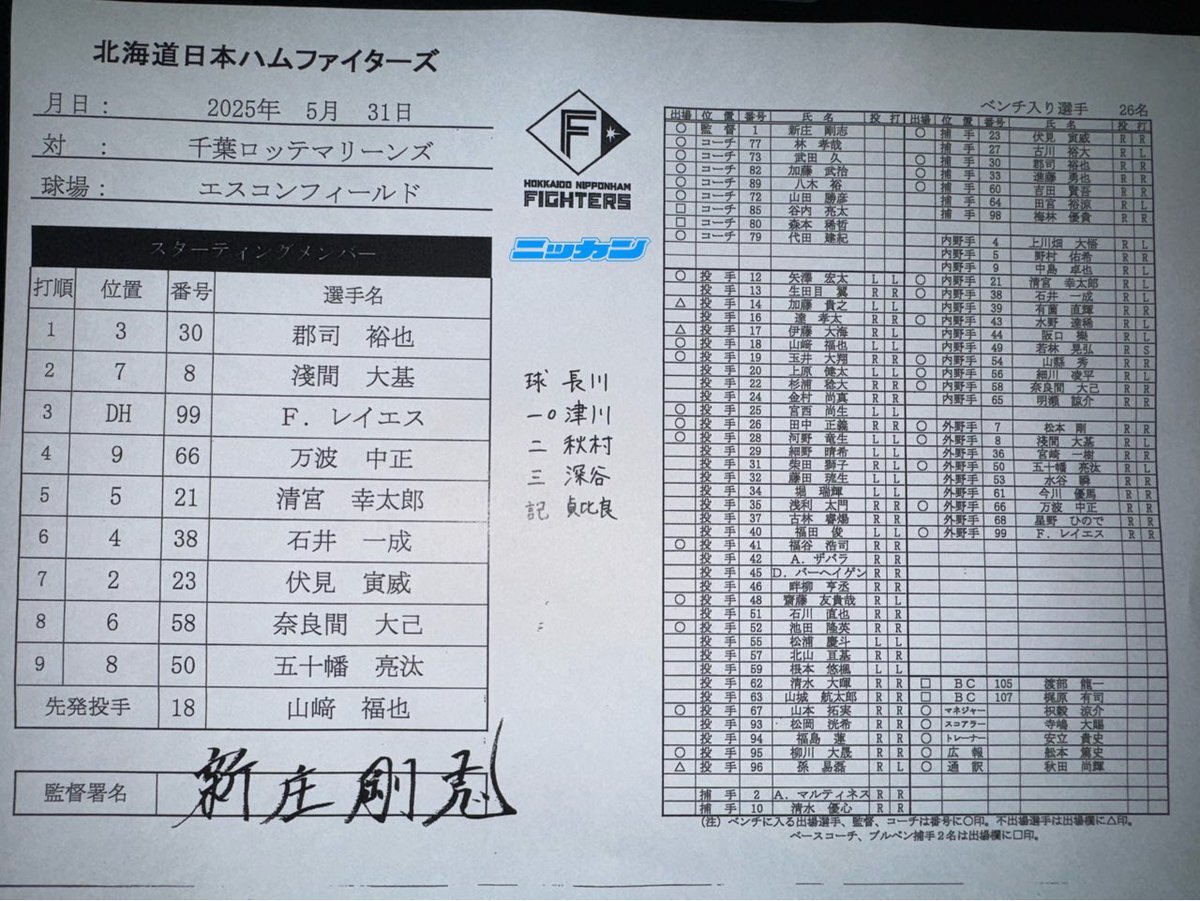 北海道日本ハムファイターズ
月日： 2025年 5月 31日
対 ： 千葉ロッテマリーンズ
球場： エスコンフィールド
スターティングメンバー
打順 位置 番号 選手名
1 3 30 郡司 裕也
2 7 8 淺間 大基
3 DH 99 F．レイエス
4 9 66 万波 中正
5 5 21 清宮 幸太郎
6 4 38 石井 一成
7 2 23 伏見 寅威
8 6 58 奈良間 大己
9 8 50 五十幡 亮汰
先発投手 18 山﨑 福也
監督署名 新庄剛志
F
HOKKAIDO NIPPONHAM
FIGHTERS
ニッカン
球 長川
一。津川
二 秋村
三 深谷
記 貞比良
ベンチ入り選手 26名
出場 位置 番号 氏名 投 打
○ 監督 1 新庄 剛志
○ コーチ 77 林 孝哉
○ コーチ 73 武田 久
○ コーチ 82 加藤 武治
○ コーチ 89 八木 裕
○ コーチ 72 山田 勝彦
□ コーチ 85 谷内 亮太
□ コーチ 80 森本 稀哲
○ コーチ 79 代田 建紀
○ 投手 12 矢澤 宏太 L L
投手 13 生田目 翼 R R
△ 投手 14 加藤 貴之 L L
投手 16 達 孝太 R R
△ 投手 17 伊藤 大海 R L
○ 投手 18 山﨑 福也 L L
○ 投手 19 玉井 大翔 R R
投手 20 上原 健太 L L
投手 22 杉浦 稔大 R R
投手 24 金村 尚真 R R
○ 投手 25 宮西 尚生 L L
○ 投手 26 田中 正義 R R
○ 投手 28 河野 竜生 L L
投手 29 細野 晴希 L L
投手 31 柴田 獅子 R L
投手 32 藤田 琉生 L L
投手 34 堀 瑞輝 L L
投手 35 浅利 太門 R R
投手 37 古林 睿煬 R R
投手 40 福田 俊 L L
○ 投手 41 福谷 浩司 R R
投手 42 A．ザバラ R R
投手 45 D．バーヘイゲン R R
投手 46 畔柳 亨丞 R R
○ 投手 48 齋藤 友貴哉 R L
投手 51 石川 直也 R R
○ 投手 52 池田 隆英 R R
投手 55 松浦 慶斗 L L
投手 57 北山 亘基 R R
投手 59 根本 悠楓 L L
投手 62 清水 大暉 R R
投手 63 山城 航太郎 R R
○ 投手 67 山本 拓実 R R
投手 93 松岡 洸希 R R
投手 94 福島 蓮 R R
○ 投手 95 柳川 大晟 R R
△ 投手 96 孫 易磊 R L
捕手 2 A．マルティネス R R
捕手 10 清水 優心 R R
出場 位置 番号 氏名 投 打
○ 捕手 23 伏見 寅威 R R
捕手 27 古川 裕大 R L
○ 捕手 30 郡司 裕也 R R
○ 捕手 33 進藤 勇也 R R
○ 捕手 60 吉田 賢吾 R R
捕手 64 田宮 裕涼 R L
捕手 98 梅林 優貴 R R
内野手 4 上川畑 大悟 R L
内野手 5 野村 佑希 R R
内野手 9 中島 卓也 R L
○ 内野手 21 清宮 幸太郎 R L
○ 内野手 38 石井 一成 R L
内野手 39 有薗 直輝 R R
○ 内野手 43 水野 達稀 R L
内野手 44 阪口 樂 R L
内野手 49 若林 晃弘 R S
○ 内野手 54 山縣 秀 R R
○ 内野手 56 細川 凌平 R L
○ 内野手 58 奈良間 大己 R R
内野手 65 明瀬 諒介 R R
○ 外野手 7 松本 剛 R R
○ 外野手 8 淺間 大基 R L
外野手 36 宮崎 一樹 R R
○ 外野手 50 五十幡 亮汰 R L
外野手 53 水谷 瞬 R R
外野手 61 今川 優馬 R R
○ 外野手 66 万波 中正 R R
外野手 68 星野 ひので R R
○ 外野手 99 F．レイエス R R
□ BC 105 渡部 龍一
□ BC 107 梶原 有司
○ マネジャー 枳穀 涼介
○ スコアラー 寺嶋 大賜
○ トレーナー 安立 貴史
○ 広報 舩本 篤史
○ 通訳 秋田 尚輝
(注) ベンチに入る出場選手、監督、コーチは番号に○印。不出場選手は出場欄に△印。
ベースコーチ、ブルペン捕手２名は出場欄に□印。